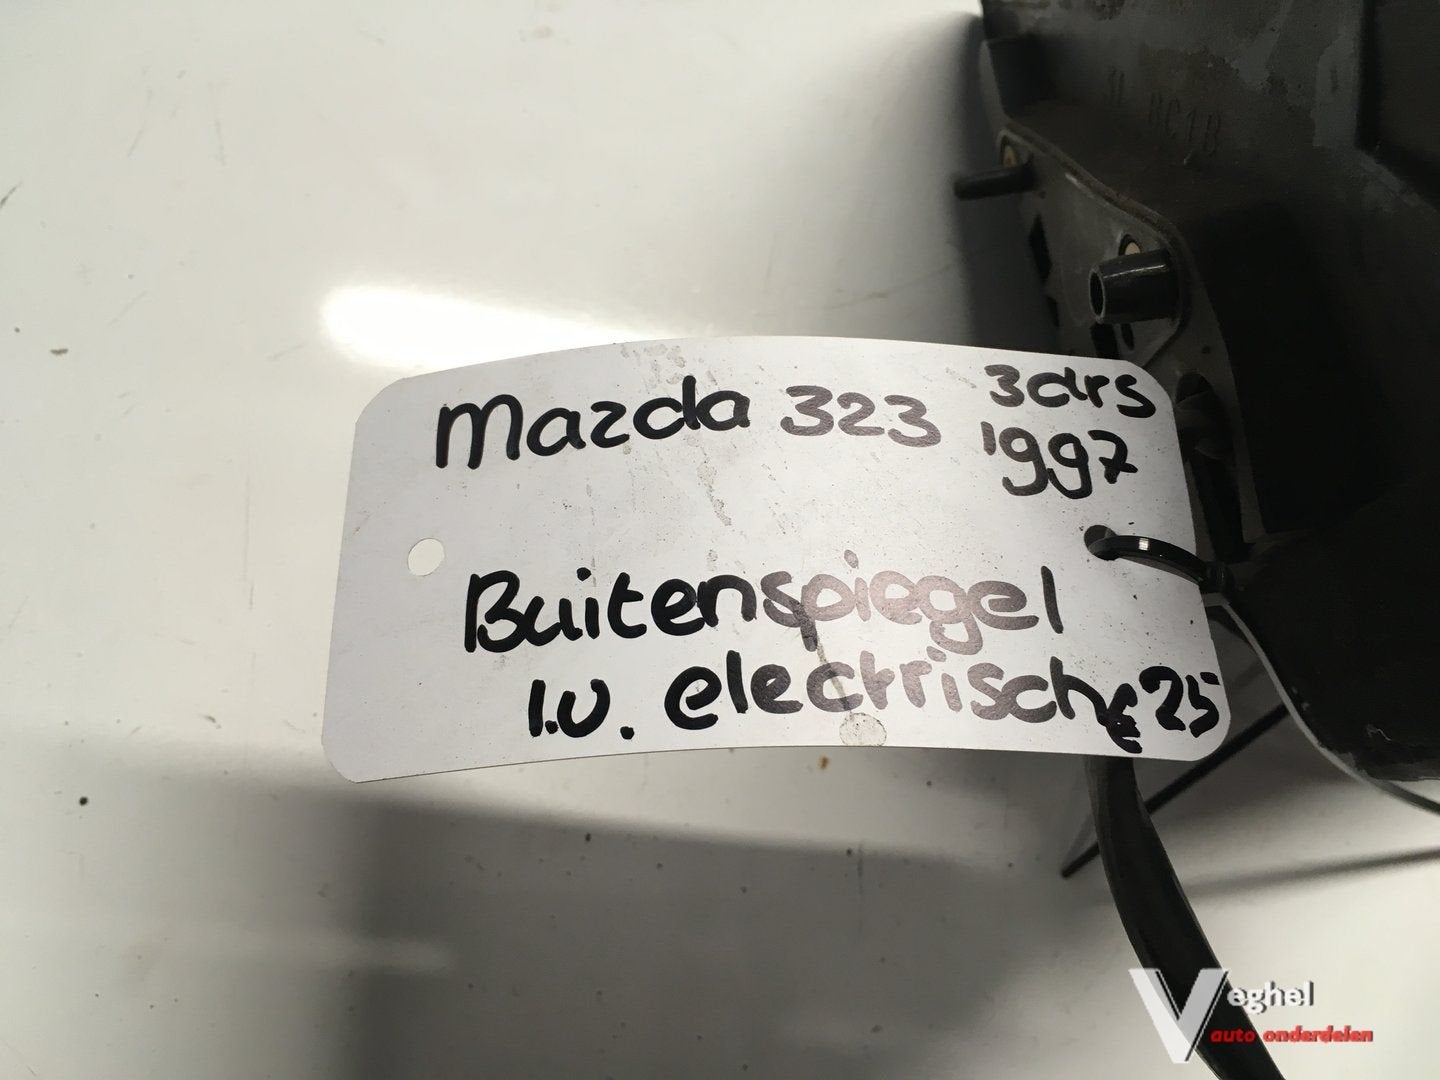 BC1B
Mazda 323 3drs
1997
Buitenspiegel
l.v. electrische €25
Veghel
auto onderdelen